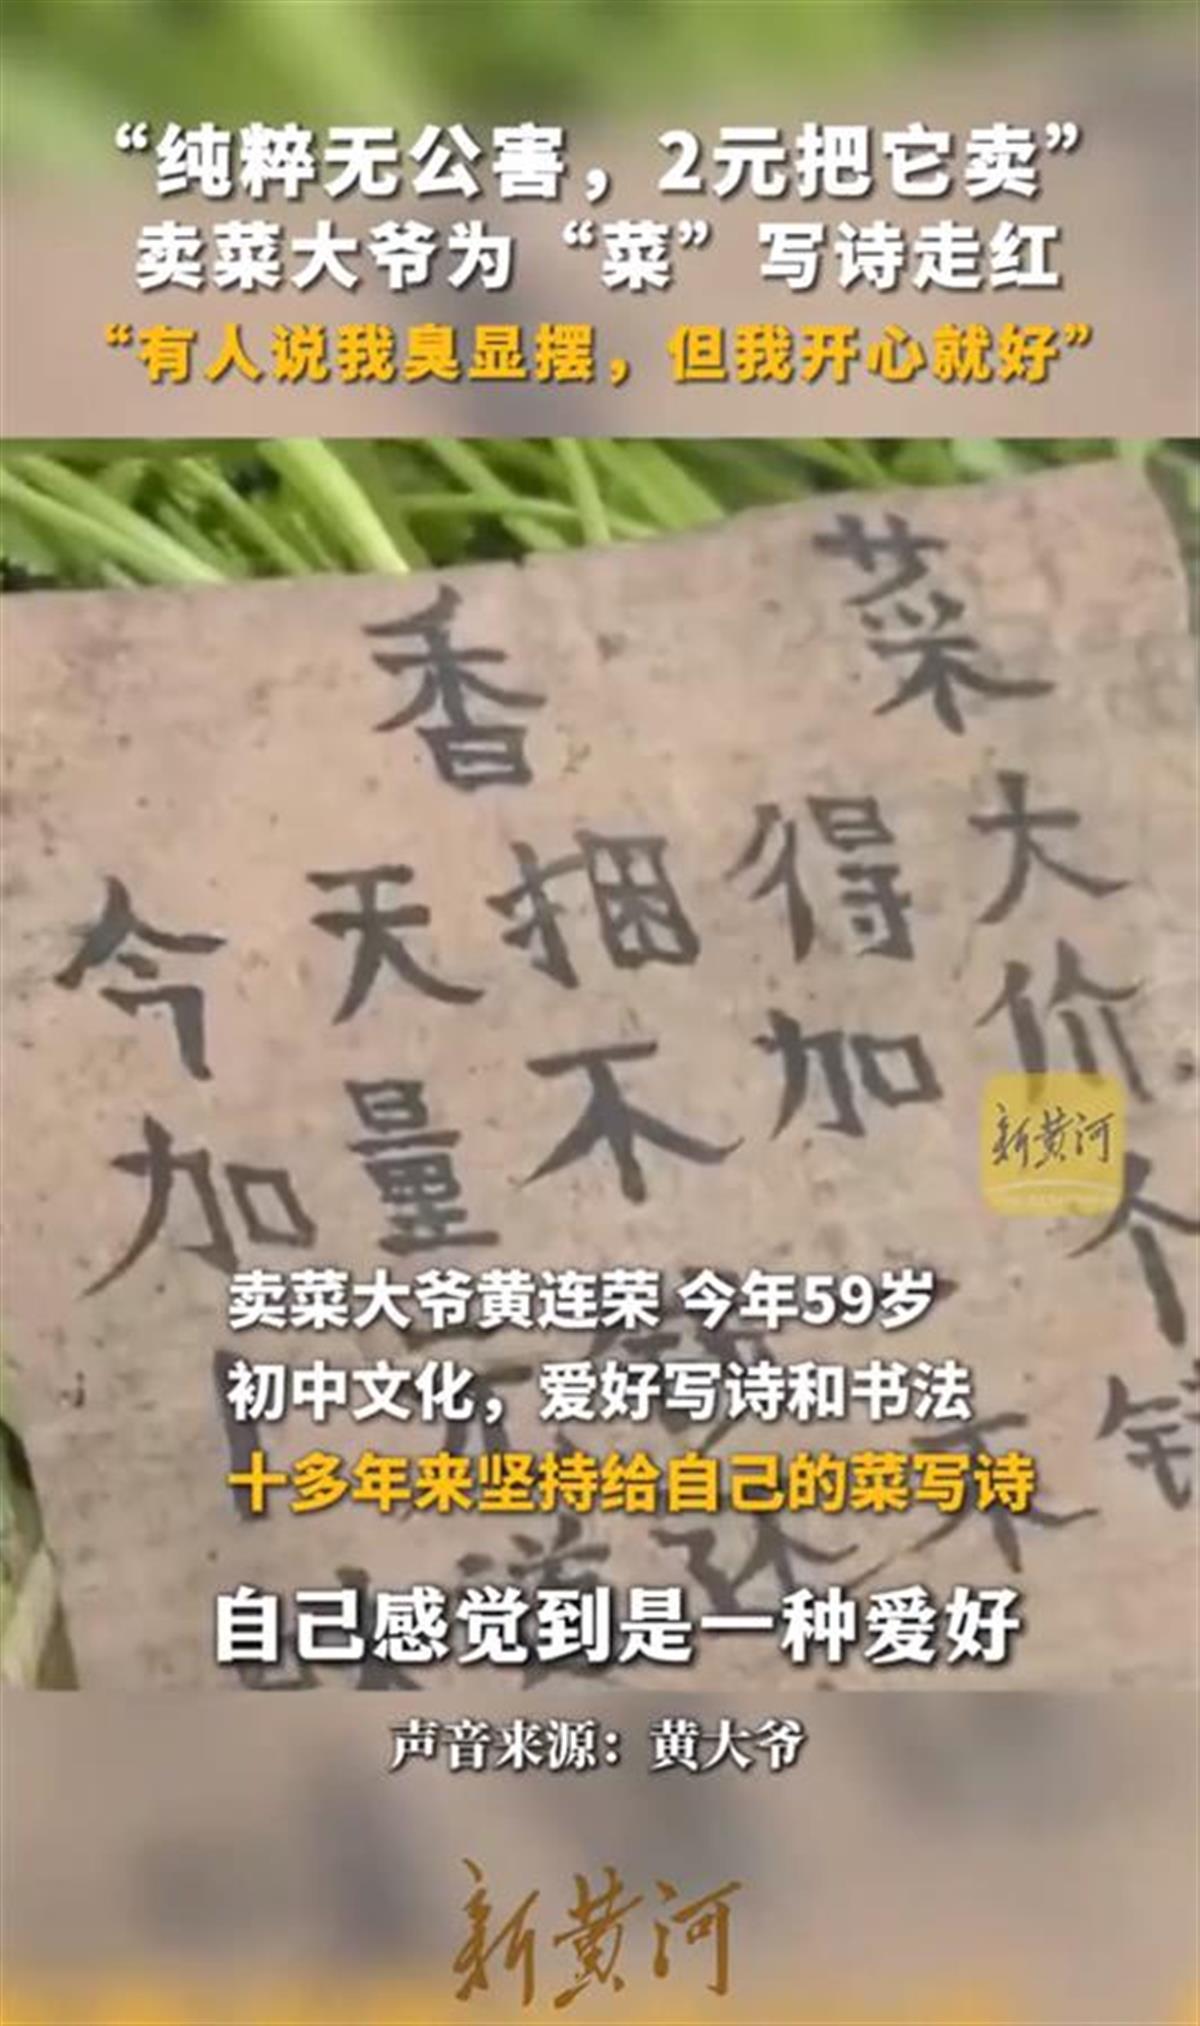 “纯粹无公害，2元把它卖”
卖菜大爷为“菜”写诗走红
“有人说我臭显摆，但我开心就好”
香菜
今天捆得大
加量不加价
新黄河
个
卖菜大爷黄连荣 今年59岁
初中文化，爱好写诗和书法
十多年来坚持给自己的菜写诗
自己感觉到是一种爱好
声音来源：黄大爷
新黄河